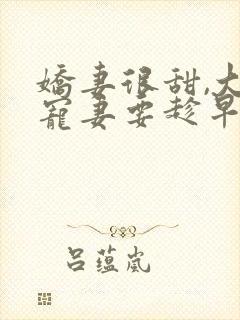 嬌妻很甜,大
寵妻要趁早
呂蘊嵐